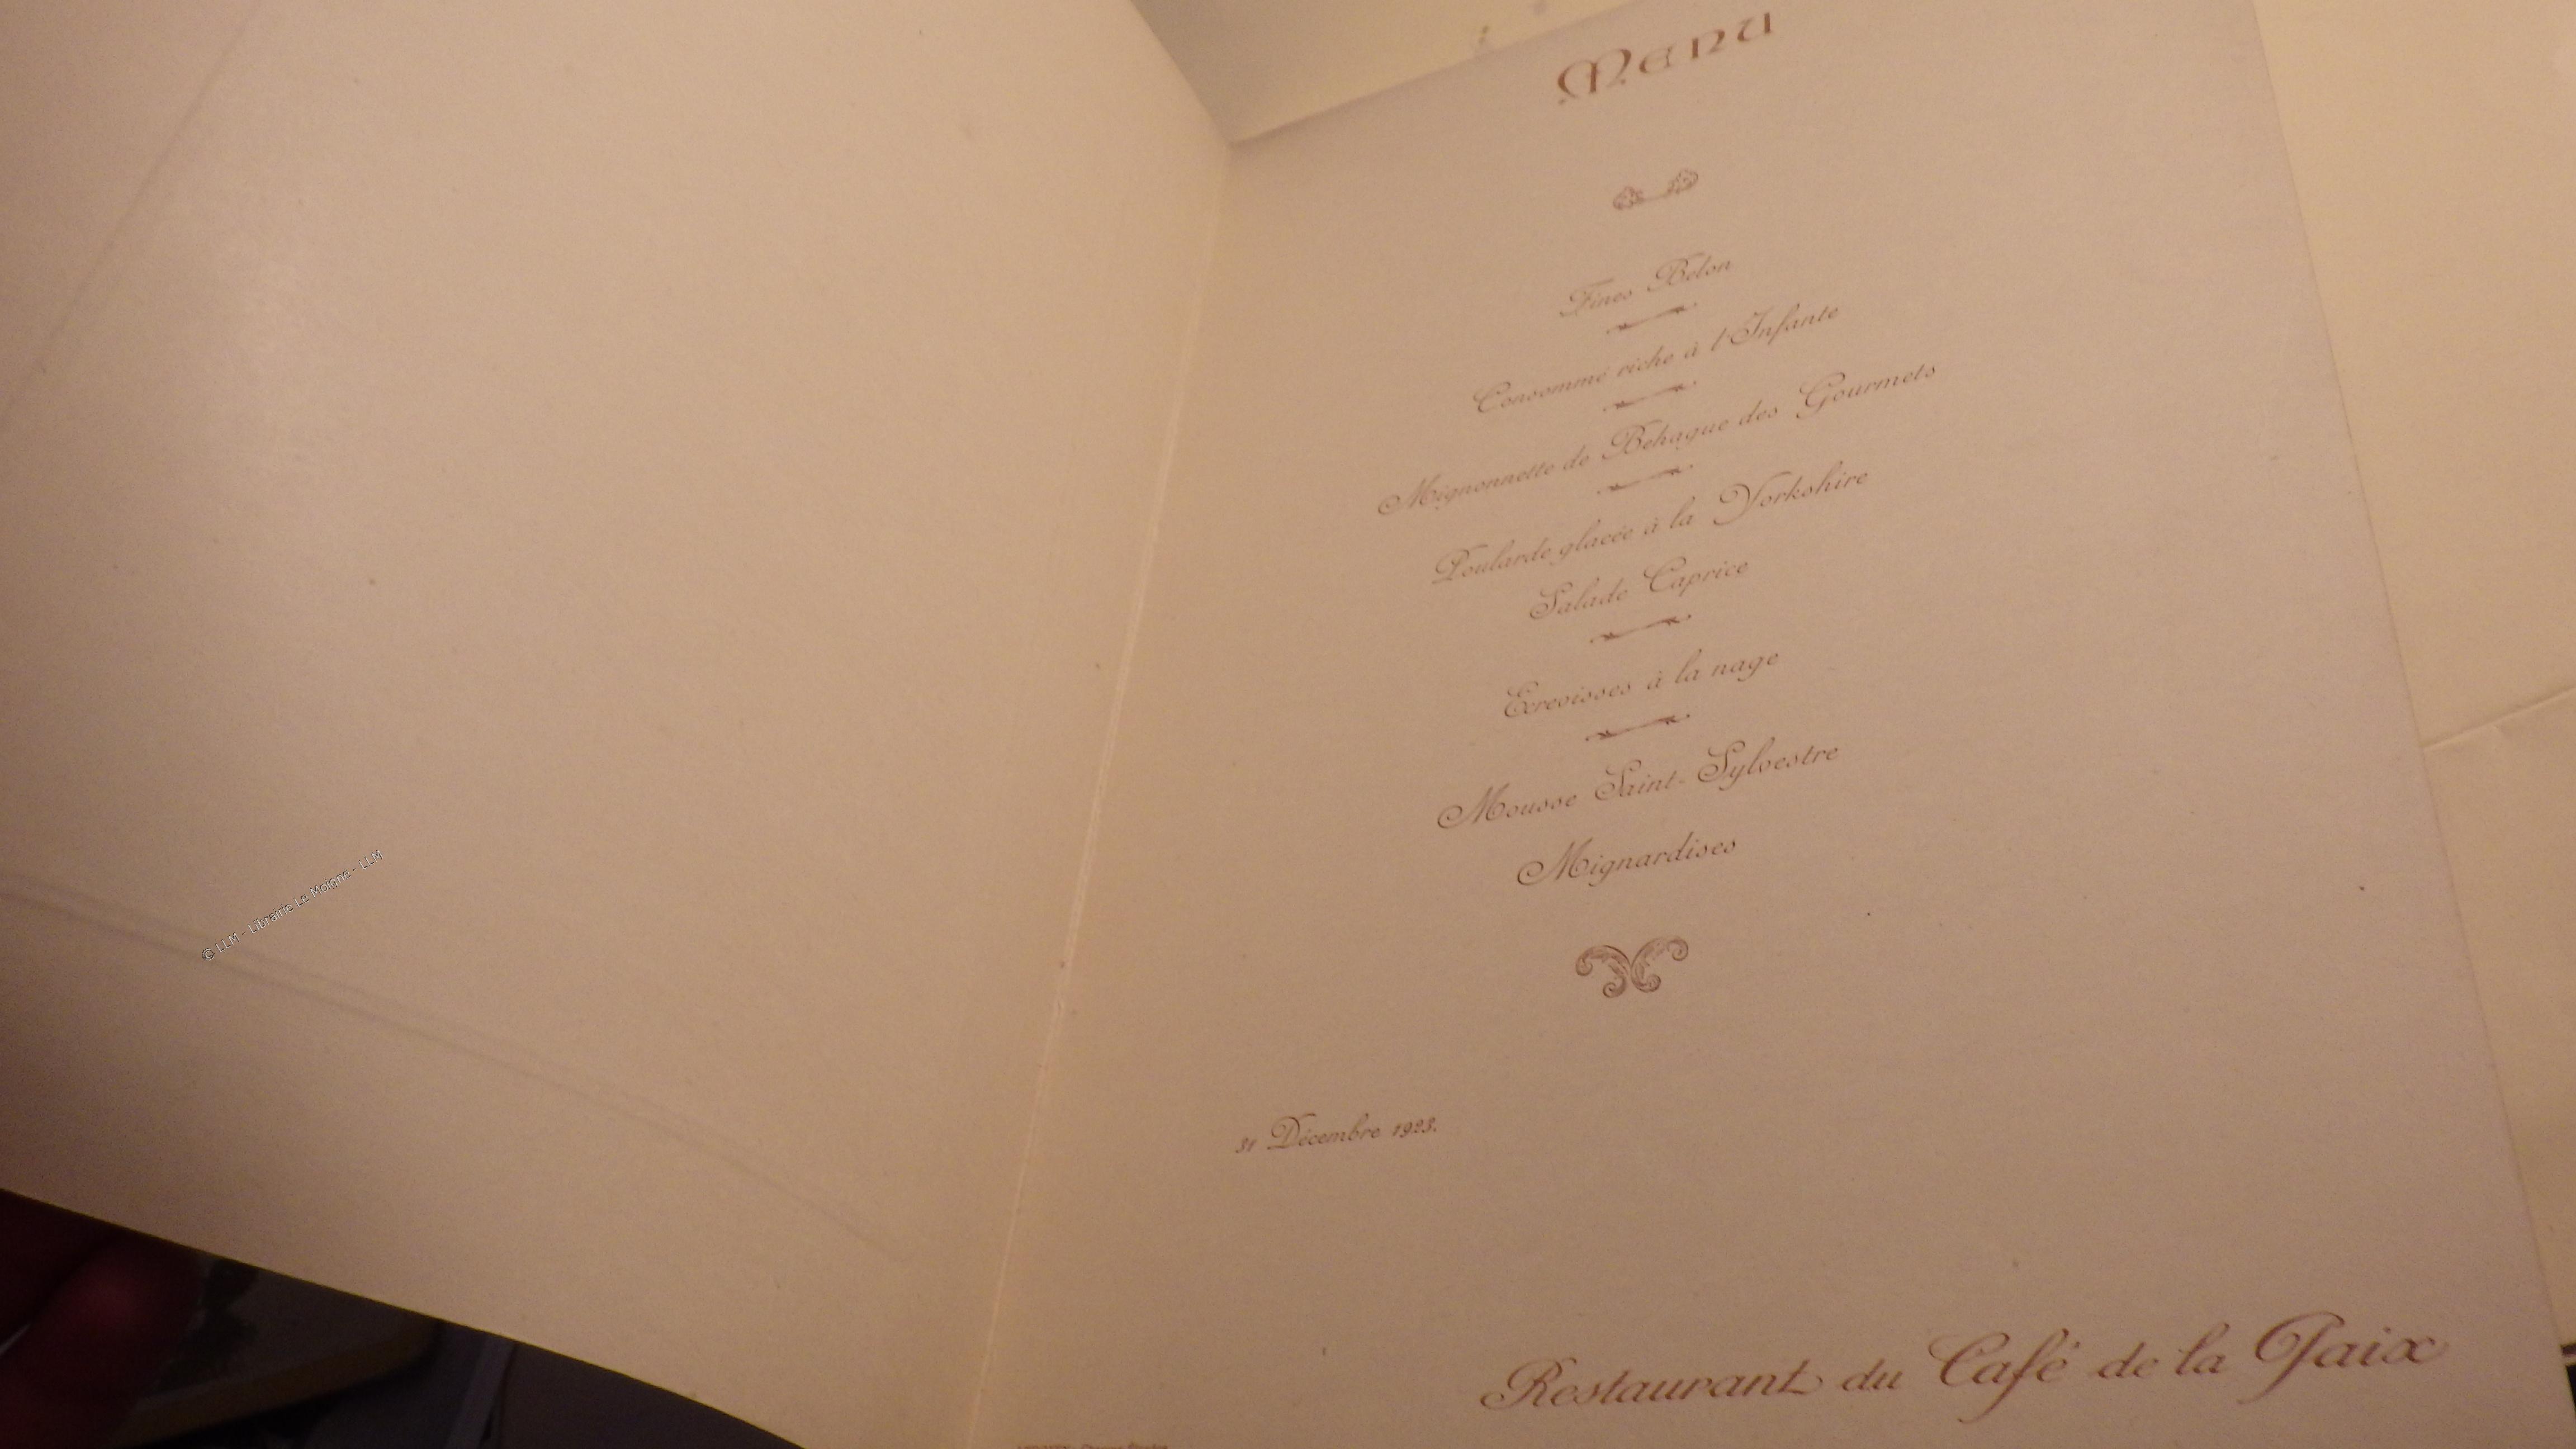 Menu
Fines Belon
Consommé riche à l'Infante
Mignonnette de Behague des Gourmets
Poularde glacée à la Yorkshire
Salade Caprice
Ecrevisses à la nage
Mousse Saint-Sylvestre
Mignardises
31 Décembre 1923.
Restaurant du Café de la Paix
© LLM - Librairie Le Moigne - LLM